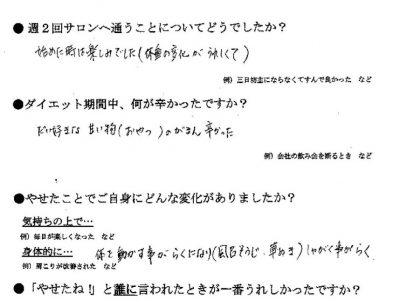 ● 週２回サロンへ通うことについてどうでしたか？
始めた時は楽しみでした(体重の変化がうれしくて)
例）三日坊主にならなくてすんで良かった　など
●ダイエット期間中、何が辛かったですか？
だい好きな 甘い物(おやつ)のがまん辛かった
例）会社の飲み会を断るとき　など
●やせたことでご自身にどんな変化がありましたか？
気持ちの上で…
例）毎日が楽しくなった　など
身体的に…　体を動かす事がらくになり(風呂そうじ、草むしり)しゃがむ事がらく
例）肩こりが改善された　など
● 「やせたね！」と誰に言われたときが一番うれしかったですか？